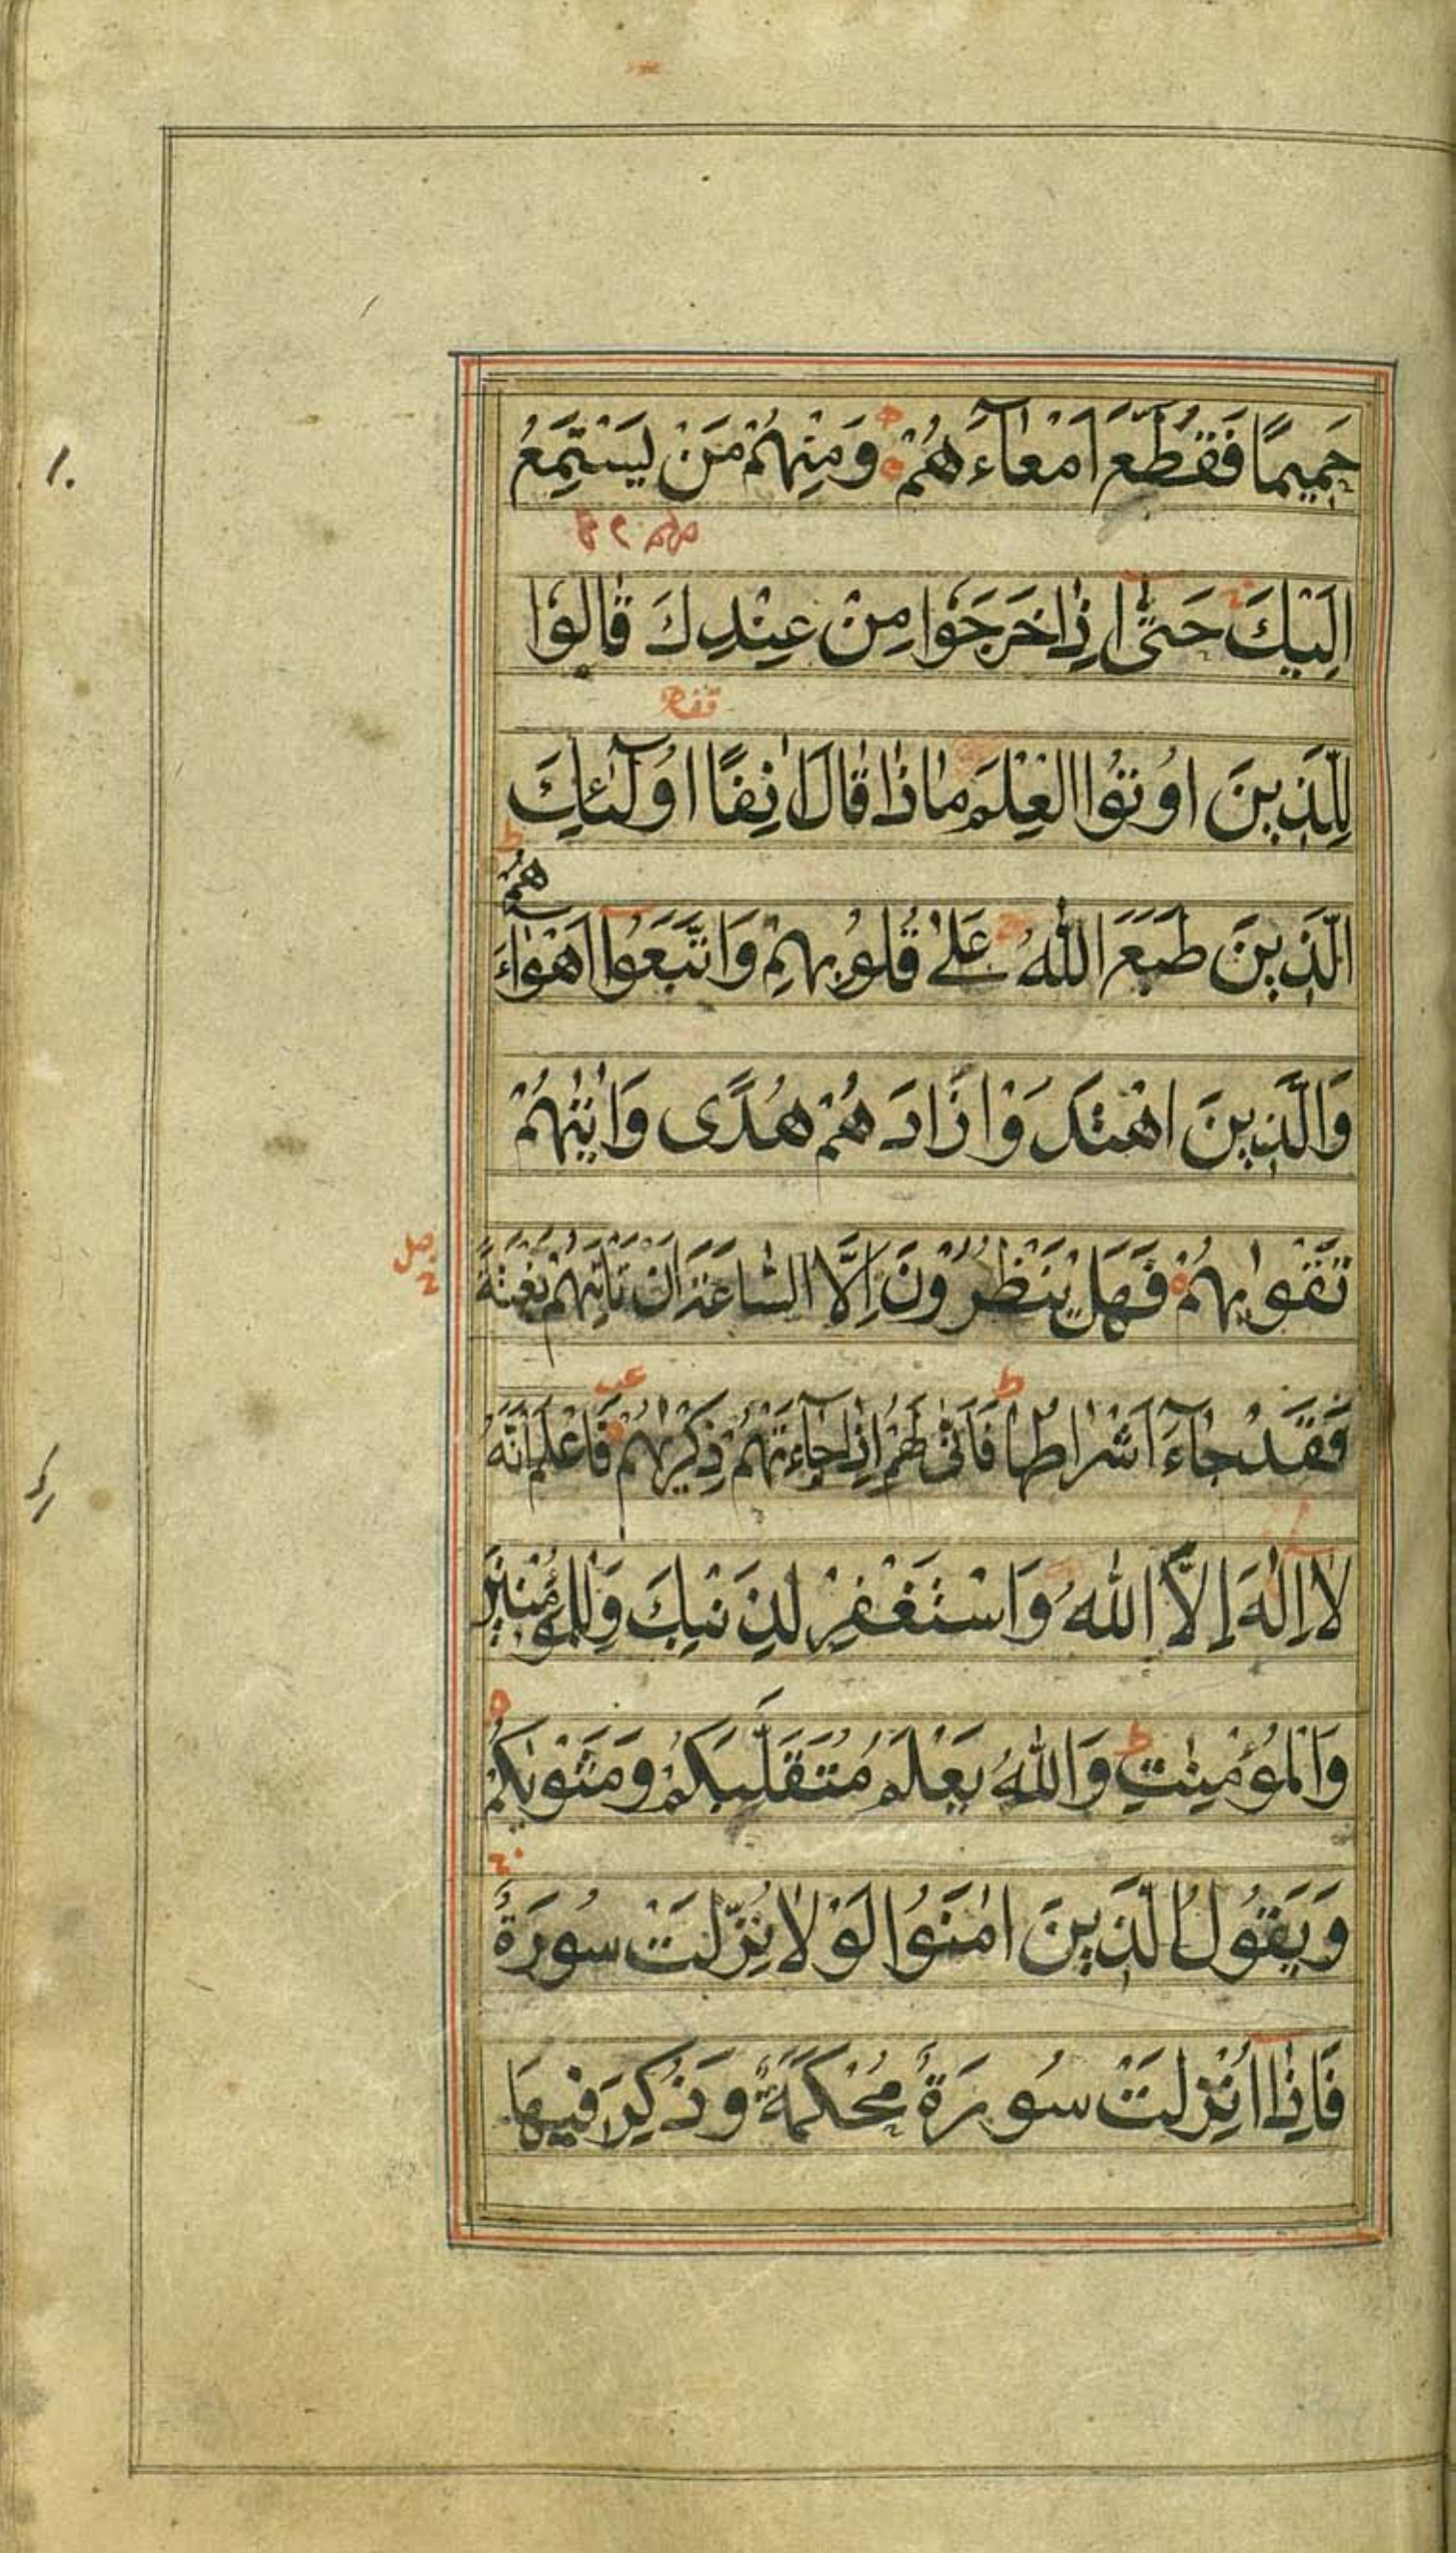 حَمِيمًا فَقَطَّعَ اَمْعَآءَهُمْ وَمِنْهُمْ مَنْ يَسْتَمِعُ
اِلَيْكَ حَتّٰى اِذَا خَرَجَوْا مِنْ عِنْدِكَ قَالُوْا
لِلَّذِينَ اُوتُوا الْعِلْمَ مَاذَا قَالَ اٰنِفًا اُولٰٓئِكَ
الَّذِينَ طَبَعَ اللّٰهُ عَلٰى قُلُوبِهِمْ وَاتَّبَعُوا اَهْوَآءَهُمْ
وَالَّذِينَ اهْتَدَوْا زَادَهُمْ هُدًى وَاٰتٰهُمْ
تَقْوٰىهُمْ فَهَلْ يَنْظُرُوْنَ اِلَّا السَّاعَةَ اَنْ تَاْتِيَهُمْ بَغْتَةً
فَقَدْ جَآءَ اَشْرَاطُهَا فَاَنّٰى لَهُمْ اِذَا جَآءَتْهُمْ ذِكْرٰىهُمْ فَاعْلَمْ اَنَّهُ
لَا اِلٰهَ اِلَّا اللّٰهُ وَاسْتَغْفِرْ لِذَنْبِكَ وَلِلْمُؤْمِنِينَ
وَالْمُؤْمِنٰتِ وَاللّٰهُ يَعْلَمُ مُتَقَلَّبَكُمْ وَمَثْوٰىكُمْ
وَيَقُولُ الَّذِينَ اٰمَنُوا لَوْلَا نُزِّلَتْ سُورَةٌ
فَاِذَا اُنْزِلَتْ سُورَةٌ مُحْكَمَةٌ وَذُكِرَ فِيهَا